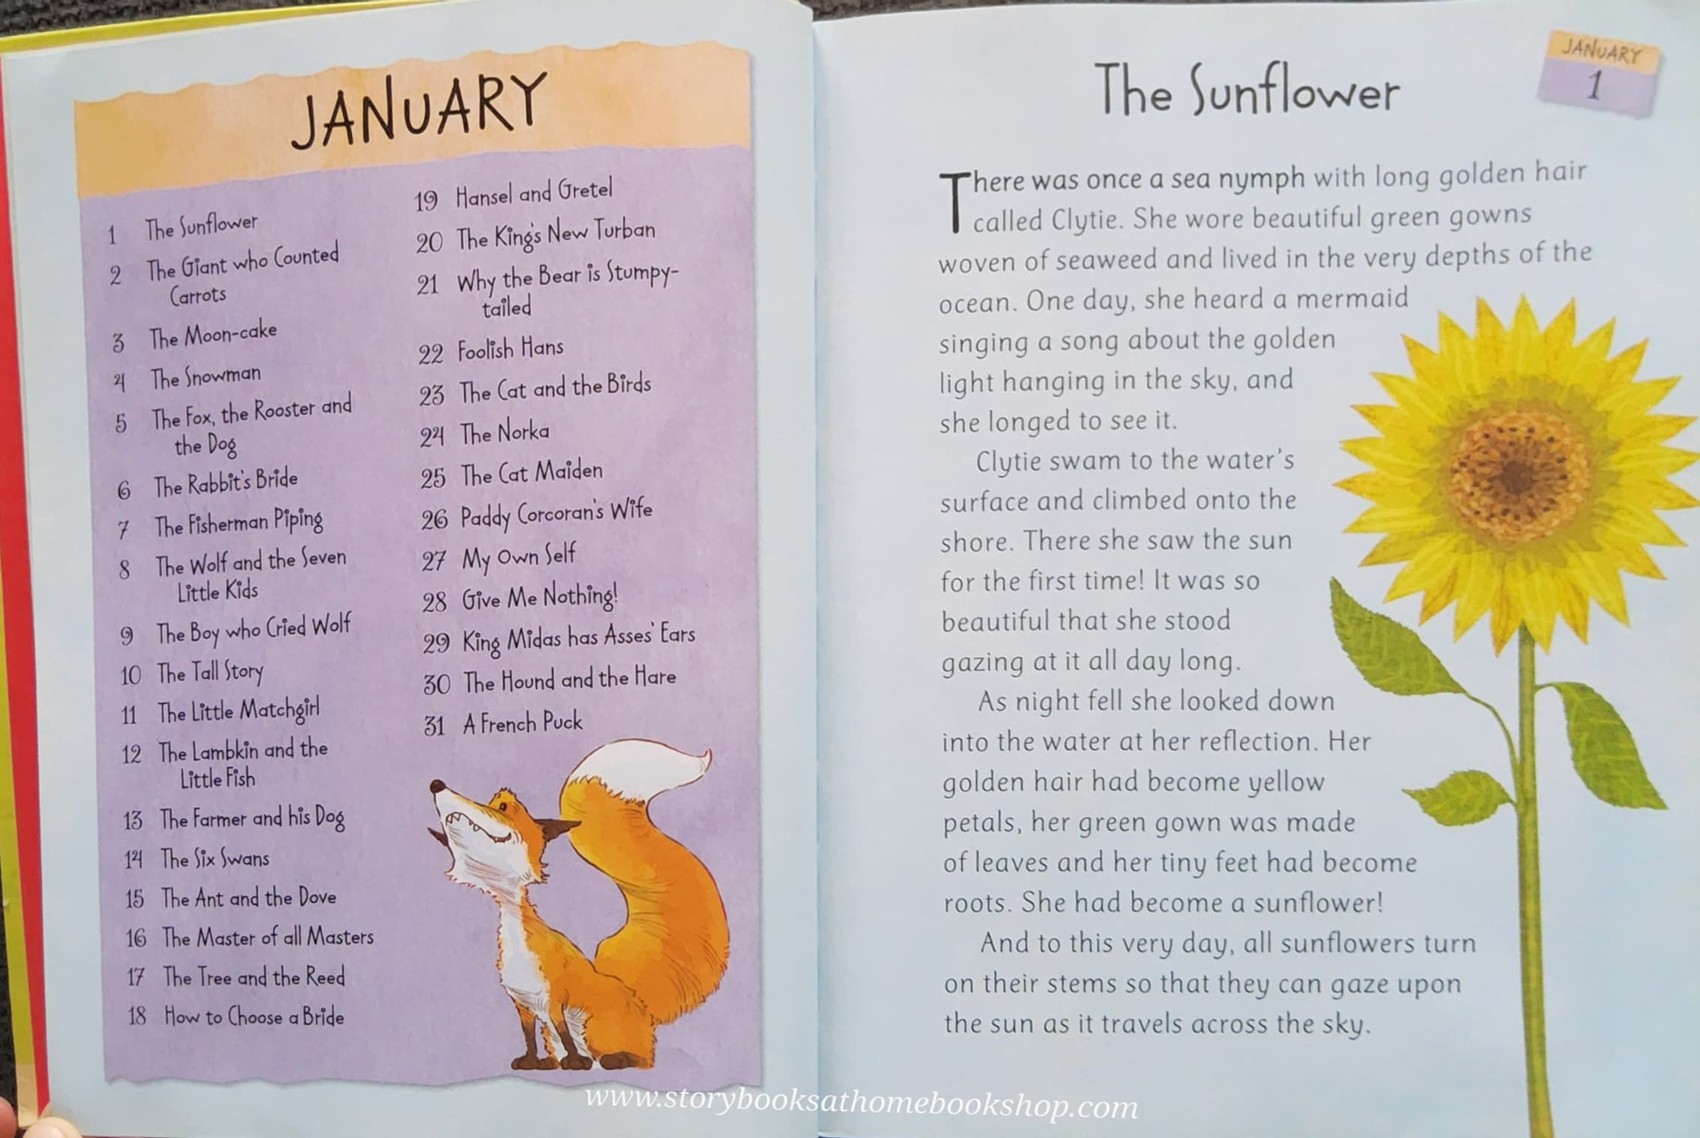 JANUARY
1 The Sunflower
2 The Giant who Counted
Carrots
3 The Moon-cake
4 The Snowman
5 The Fox, the Rooster and
the Dog
6 The Rabbit's Bride
7 The Fisherman Piping
8 The Wolf and the Seven
Little Kids
9 The Boy who Cried Wolf
10 The Tall Story
11 The Little Matchgirl
12 The Lambkin and the
Little Fish
13 The Farmer and his Dog
14 The Six Swans
15 The Ant and the Dove
16 The Master of all Masters
17 The Tree and the Reed
18 How to Choose a Bride
19 Hansel and Gretel
20 The King's New Turban
21 Why the Bear is Stumpy-
tailed
22 Foolish Hans
23 The Cat and the Birds
24 The Norka
25 The Cat Maiden
26 Paddy Corcoran's Wife
27 My Own Self
28 Give Me Nothing!
29 King Midas has Asses' Ears
30 The Hound and the Hare
31 A French Puck
JANUARY
1
The Sunflower
There was once a sea nymph with long golden hair
called Clytie. She wore beautiful green gowns
woven of seaweed and lived in the very depths of the
ocean. One day, she heard a mermaid
singing a song about the golden
light hanging in the sky, and
she longed to see it.
Clytie swam to the water's
surface and climbed onto the
shore. There she saw the sun
for the first time! It was so
beautiful that she stood
gazing at it all day long.
As night fell she looked down
into the water at her reflection. Her
golden hair had become yellow
petals, her green gown was made
of leaves and her tiny feet had become
roots. She had become a sunflower!
And to this very day, all sunflowers turn
on their stems so that they can gaze upon
the sun as it travels across the sky.
www.storybooksathomebookshop.com